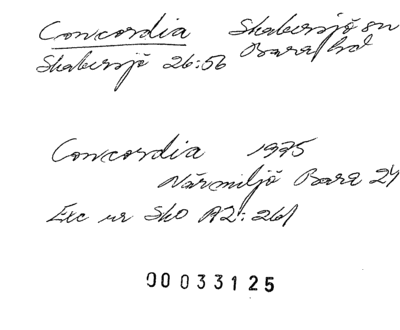 Concordia Skabersjö sn
Skabersjö 26:56 Bara hd
Concordia 1975
Närmiljö Bara 24
Exc ur Sko A2:261
00033125